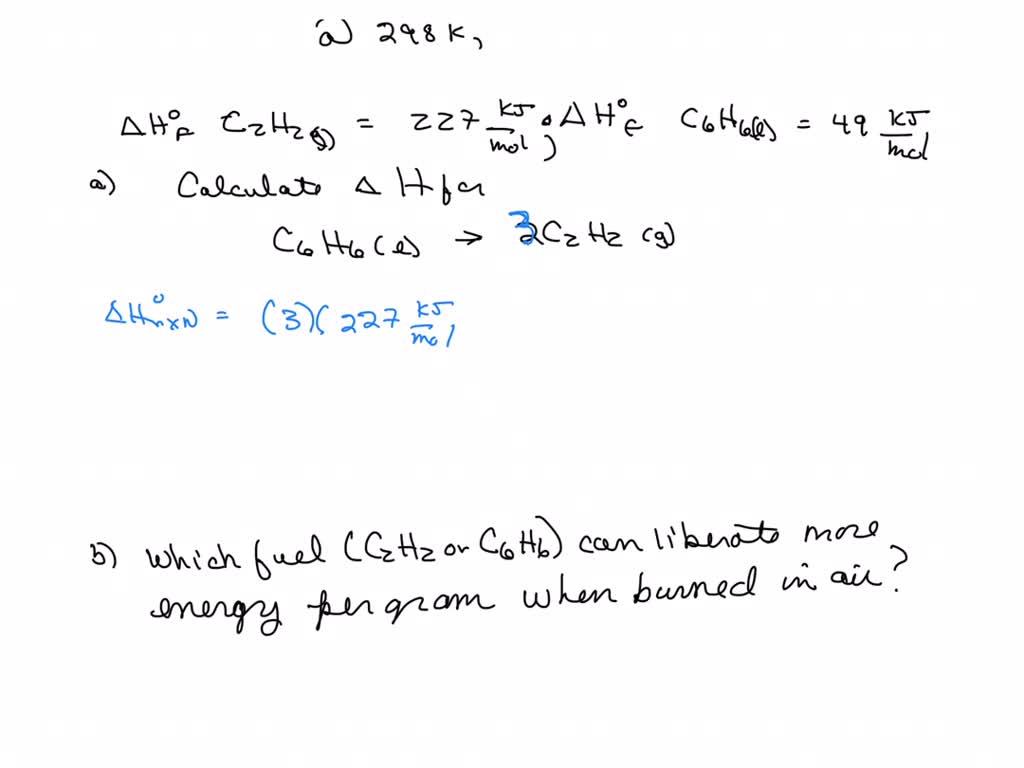 @ 298 K,
ΔH°f C2H2(g) = 227 kJ/mol, ΔH°f C6H6(l) = 49 kJ/mol
a) Calculate ΔH for
C6H6(l) → 3C2H2 (g)
ΔH°rxn = (3)(227 kJ/mol
b) Which fuel (C2H2 or C6H6) can liberate more
energy per gram when burned in air?